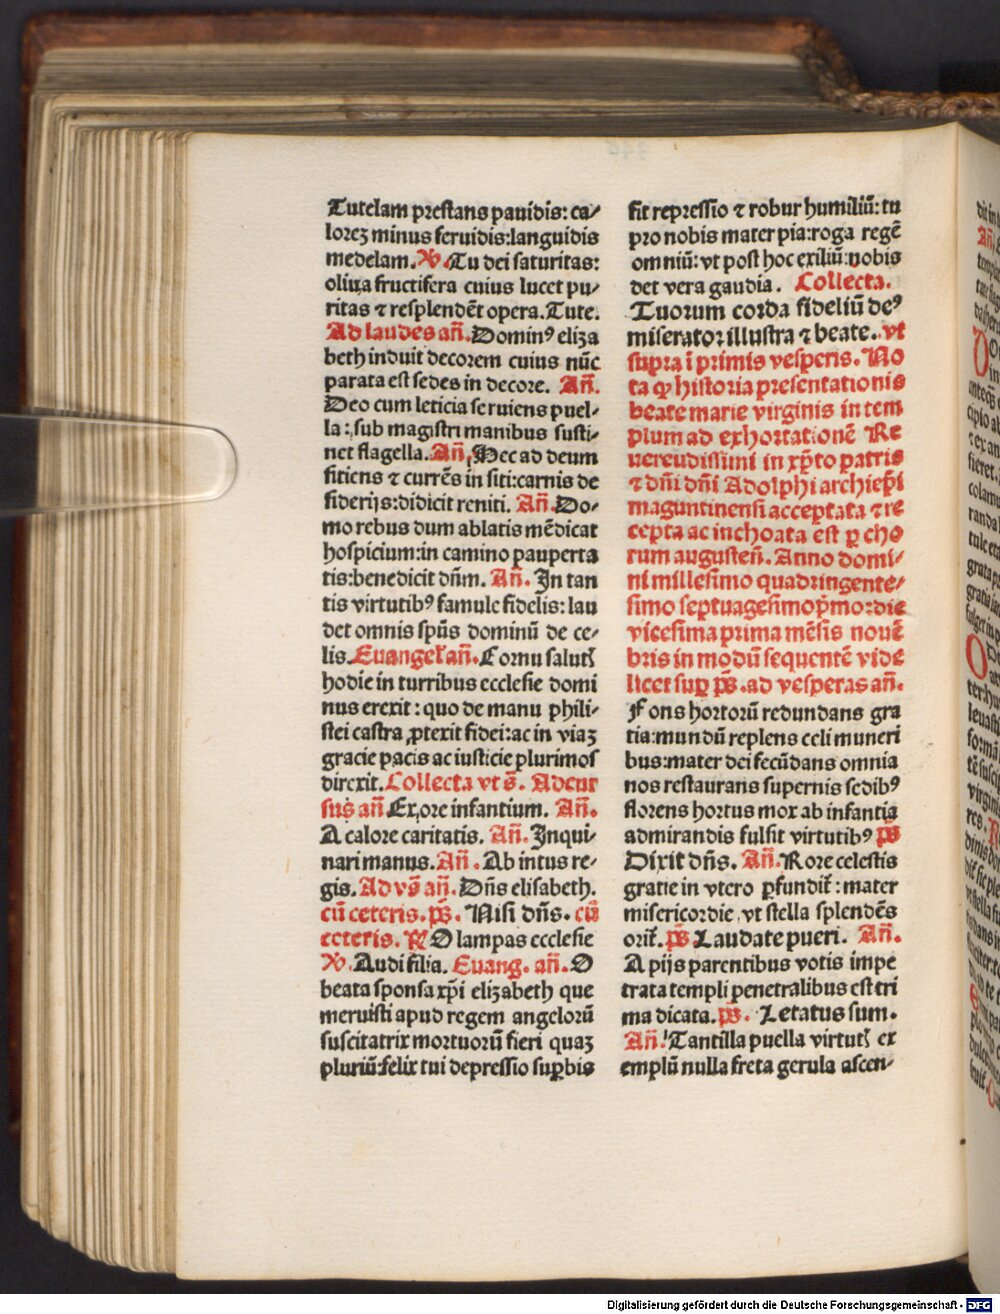 Tutelam prestans pauidis: ca/
lorez minus feruidis:languidis
medelam. V. Tu dei saturitas:
oliua fructifera cuius lucet pu/
ritas ⁊ resplendēt opera. Tute.
Ad laudes an̄. Dominꝰ eliza
beth induit decorem cuius nūc
parata est sedes in decore. An̄.
Deo cum leticia seruiens puel/
la: sub magistri manibus susti/
net flagella. An̄. Hec ad deum
sitiens ⁊ currēs in siti:carnis de
siderijs:didicit reniti. An̄. Do/
mo rebus dum ablatis mēdicat
hospicium:in camino pauperta
tis:benedicit dn̄m. An̄. In tan
tis virtutibꝰ famule fidelis: lau
det omnis spūs dominū de ce/
lis. Euangel̄ an̄. Cornu salutꝭ
hodie in turribus ecclesie domi
nus erexit : quo de manu phili/
stei castra ꝓtexit fidei:ac in viaz
gracie pacis ac iusticie plurimos
direxit. Collecta vt s̄. Ad cur
sus an̄ Ex ore infantium. An̄.
A calore caritatis. An̄. Inqui/
nari manus. An̄. Ab intus re/
gis. Ad vs̄ an̄. Dn̄s elisabeth.
cū ceteris. ps̄. Nisi dn̄s. cū
ceteris. R O lampas ecclesie
V. Audi filia. Euang. an̄. O
beata sponsa xp̄i elizabeth que
meruisti apud regem angelorū
suscitatrix mortuorū fieri quaz
pluriū:felix tui depressio suꝑbis
fit repressio ⁊ robur humiliū: tu
pro nobis mater pia:roga regē
omniū: vt post hoc exiliū:nobis
det vera gaudia. Collecta.
Tuorum corda fideliū deꝰ
miserator illustra ⁊ beate. vt
supra ī primis vesperis. No
ta ꝙ historia presentationis
beate marie virginis in tem
plum ad exhortationē Re
uerendissimi in xp̄to patris
⁊ dn̄i dn̄i Adolphi archiep̄i
maguntinensi acceptata ⁊ re
cepta ac inchoata est ꝑ cho
rum augusten̄. Anno domi/
ni millesimo quadringente/
simo septuagesimop̄mo: die
vicesima prima mēsis nouē
bris in modū sequentē vide
licet suꝑ ps̄. ad vesperas an̄.
Fons hortorū redundans gra
tia:mundū replens celi muneri
bus:mater dei fecūdans omnia
nos restaurans supernis sedibꝰ
florens hortus mox ab infantia
admirandis fulsit virtutibꝰ ps̄
Dixit dn̄s. An̄. Rore celestis
gratie in vtero ꝑfundit̄ : mater
misericordie, vt stella splendēs
orit̄. ps̄ Laudate pueri. An̄.
A pijs parentibus votis impe
trata templi penetralibus est tri
ma dicata. ps̄. Letatus sum.
An̄. Tantilla puella virtutꝭ ex
emplū nulla freta gerula ascen/
Digitalisierung gefördert durch die Deutsche Forschungsgemeinschaft - DFG